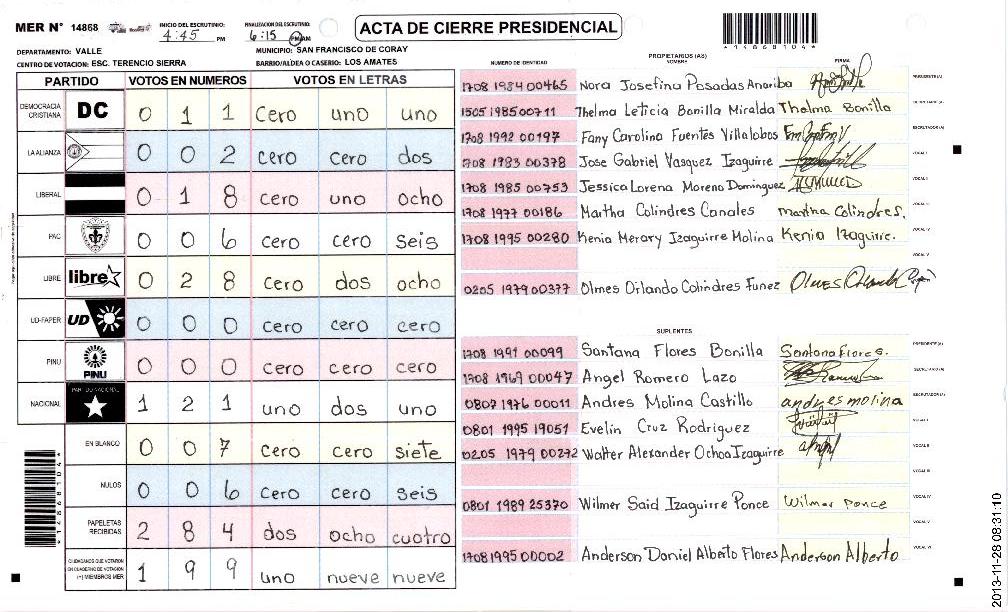 MER N° 14868 INICIO DEL ESCRUTINIO: 4:45 PM FINALIZACION DEL ESCRUTINIO: 6:15 PM AM
ACTA DE CIERRE PRESIDENCIAL
*14868104*
DEPARTAMENTO: VALLE MUNICIPIO: SAN FRANCISCO DE CORAY
CENTRO DE VOTACION: ESC. TERENCIO SIERRA BARRIO/ALDEA O CASERIO: LOS AMATES
PARTIDO VOTOS EN NUMEROS VOTOS EN LETRAS
DEMOCRACIA CRISTIANA DC 0 1 1 cero uno uno
LA ALIANZA 0 0 2 cero cero dos
LIBERAL 0 1 8 cero uno ocho
PAC 0 0 6 cero cero seis
LIBRE libre 0 2 8 cero dos ocho
UD-FAPER UD 0 0 0 cero cero cero
PINU PINU 0 0 0 cero cero cero
NACIONAL PARTIDO NACIONAL 1 2 1 uno dos uno
EN BLANCO 0 0 7 cero cero siete
NULOS 0 0 6 cero cero seis
PAPELETAS RECIBIDAS 2 8 4 dos ocho cuatro
CIUDADANOS QUE VOTARON EN CUADERNO DE VOTACION (+) MIEMBROS MER 1 9 9 uno nueve nueve
*14868104*
NUMERO DE IDENTIDAD PROPIETARIOS (AS) NOMBRE FIRMA
1708 1984 00465 Nora Josefina Posadas Anariba PRESIDENTE(A)
1505 1985 00711 Thelma Leticia Bonilla Miralda Thelma Bonilla SECRETARIO(A)
1708 1992 00197 Fany Carolina Fuentes Villalobos ESCRUTADOR(A)
1708 1983 00378 Jose Gabriel Vasquez Izaguirre VOCAL I
1708 1985 00753 Jessica Lorena Moreno Dominguez VOCAL II
1708 1977 00186 Martha Colindres Canales martha Colindres. VOCAL III
1708 1995 00280 Kenia Merary Izaguirre Molina Kenia Izaguirre. VOCAL IV
VOCAL V
0205 1979 00377 Olmes Orlando Colindres Funez Olmes Orlando
SUPLENTES
1708 1991 00099 Santana Flores Bonilla Santana Flores. PRESIDENTE(A)
1708 1969 00047 Angel Romero Lazo SECRETARIO(A)
0807 1976 00011 Andres Molina Castillo andres molina ESCRUTADOR(A)
0801 1995 19051 Evelin Cruz Rodriguez VOCAL I
0205 1979 00272 Walter Alexander Ochoa Izaguirre VOCAL II
VOCAL III
0801 1989 25370 Wilmer Said Izaguirre Ponce Wilmer Ponce VOCAL IV
VOCAL V
1708 1995 00002 Anderson Daniel Alberto Flores Anderson Alberto VOCAL VI
2013-11-28 08:31:10